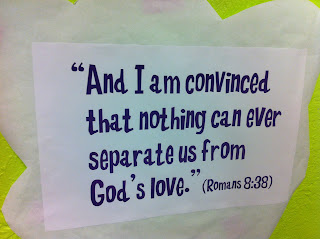 “And I am convinced
that nothing can ever
separate us from
God's love.” (Romans 8:38)